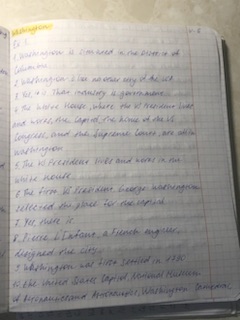 Washington
Ex. 1
1. Washington is situated in the District of
Columbia.
2. Washington is like no other city of the USA
3. Yes, it is. That industry is government.
4. The White House, where the US President lives
and works, the Capitol, the home of the US
Congress, and the Supreme Court, are all in
Washington
5. The US President lives and works in the
White House.
6. The first US President George Washington
selected the place for the capital.
7. Yes, there is.
8. Pierre L'Enfant, a French engineer,
designed the city.
9. Washington was first settled in
10. the United States Capitol, National Museum
of